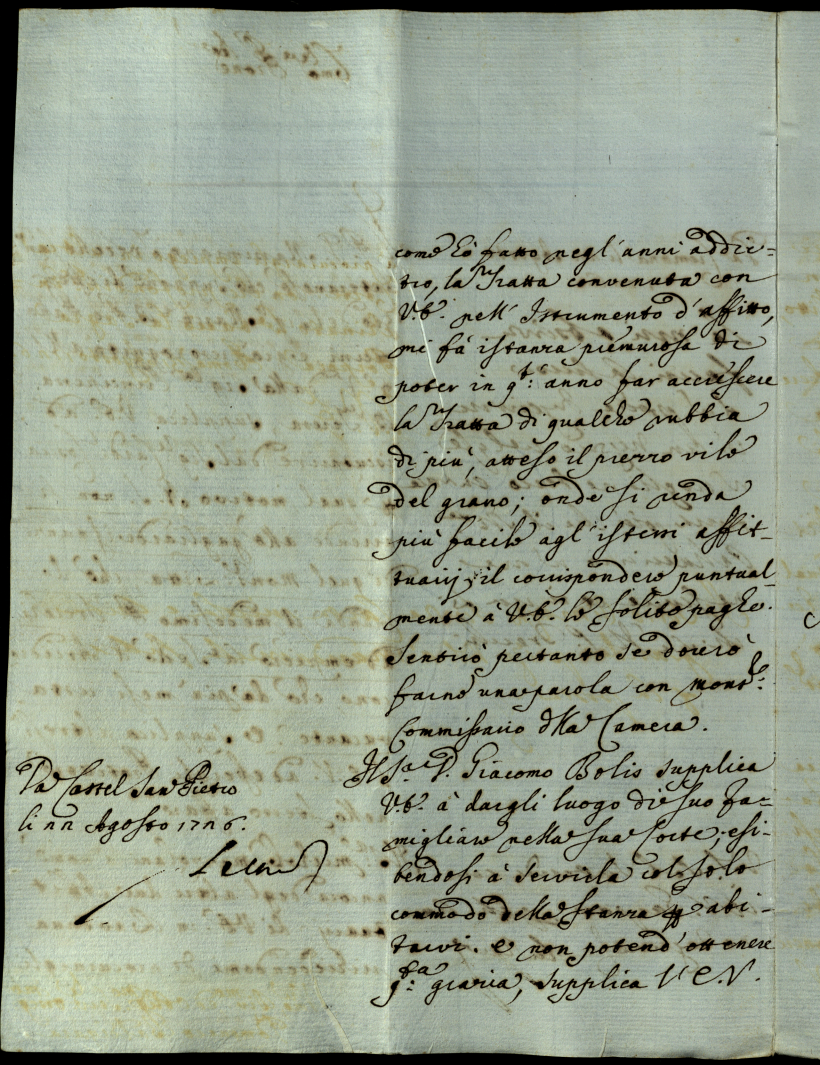 come hò fatto negl'anni addie=
tro, la Tratta convenuta con
V.E. nell'Istrumento d'affitto,
mi fà istanza premurosa di
poter in q.to anno far accrescere
la Tratta di qualche rubbia
di più, atteso il prezzo vile
del grano; onde si renda
più facile agl'istessi affit-
tuarij il corrispondere puntual-
mente à V.E. le solite paghe.
Sentirò pertanto se dourò
farne una parola con Mons.re
Commissario della Camera.
Il S.r D. Giacomo Bolis supplica
V.E. à dargli luogo di suo fa-
migliare nella sua Corte; esi-
bendosi à servirla col solo
commodo della stanza per abi-
tarvi. e non potend'ottenere
q.ta grazia, supplica l'E.V.
Da Castel San Pietro
li 22 Agosto 1726.